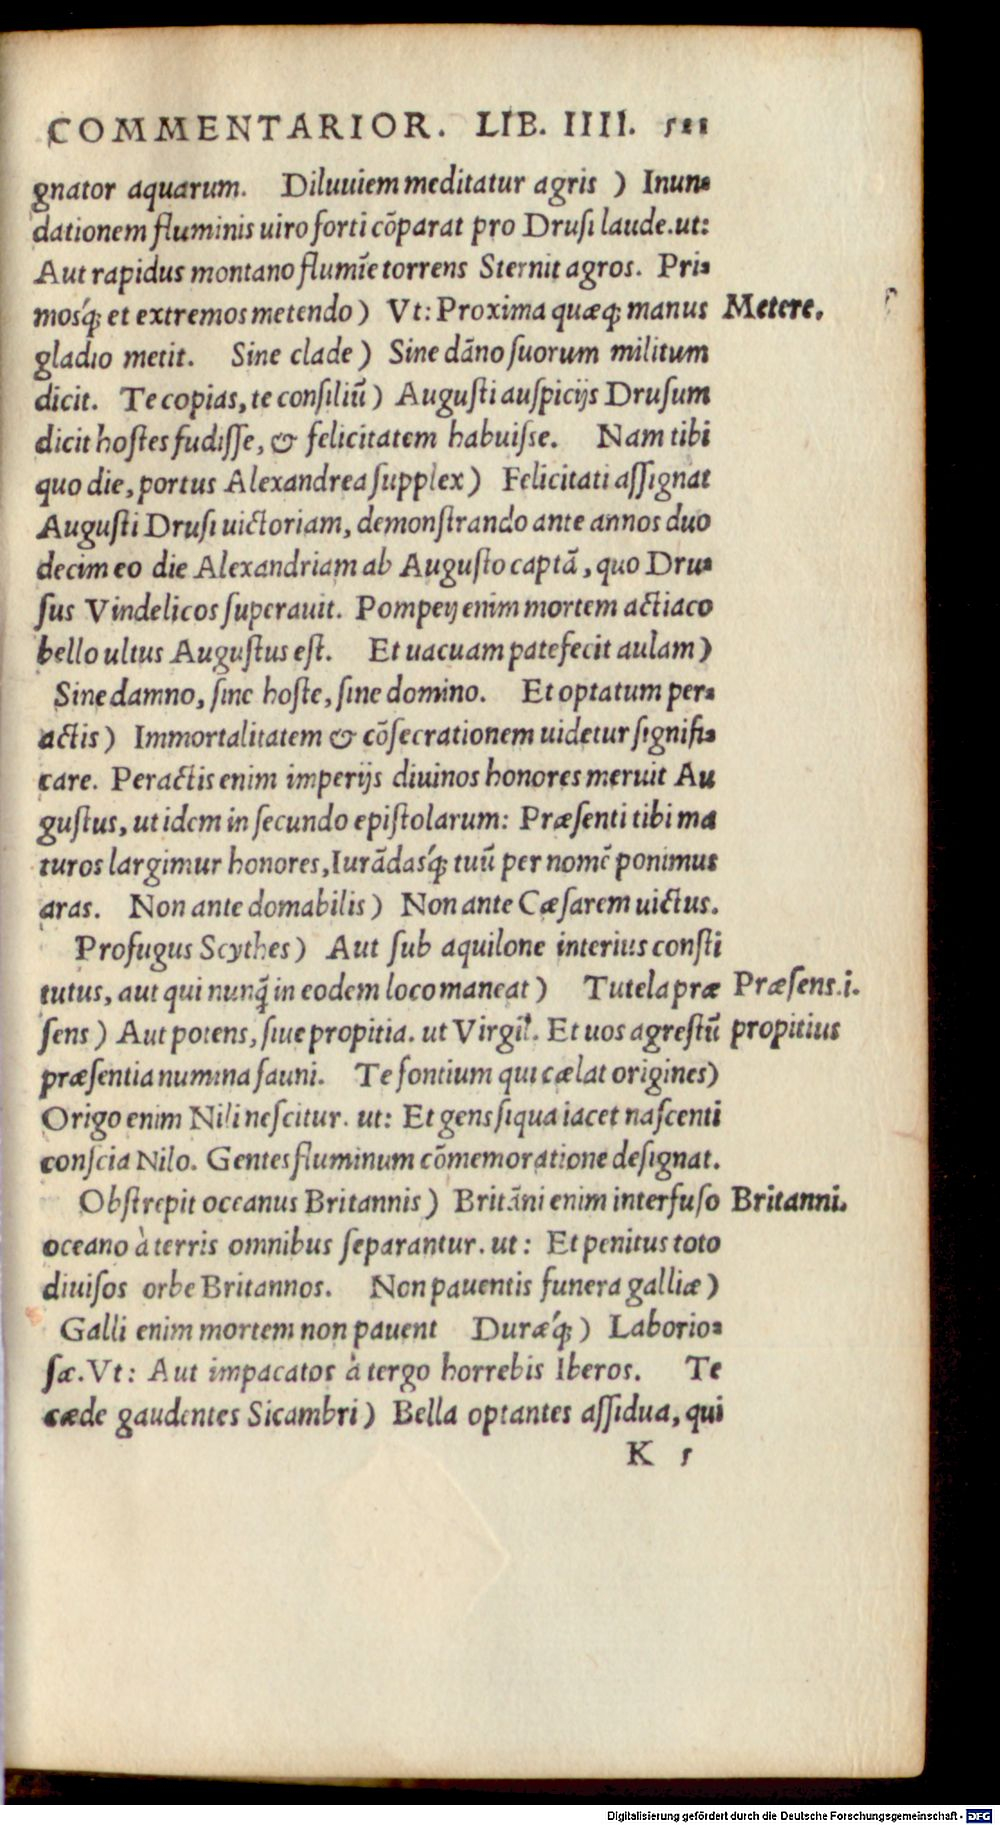 COMMENTARIOR. LIB. IIII.
gnator aquarum. Diluuiem meditatur agris ) Inun-
dationem fluminis uiro forti cõparat pro Drusi laude. ut:
Aut rapidus montano flumĩe torrens Sternit agros. Pri-
mosq́; et extremos metendo ) Vt: Proxima quæq; manus
Metere.
gladio metit. Sine clade ) Sine dãno suorum militum
dicit. Te copias, te consiliũ ) Augusti auspicijs Drusum
dicit hostes fudisse, & felicitatem habuisse. Nam tibi
quo die, portus Alexandrea supplex ) Felicitati assignat
Augusti Drusi uictoriam, demonstrando ante annos duo
decim eo die Alexandriam ab Augusto captã, quo Dru-
sus Vindelicos superauit. Pompeij enim mortem actiaco
bello ultus Augustus est. Et uacuam patefecit aulam )
Sine damno, sine hoste, sine domino. Et optatum per-
actis ) Immortalitatem & cõsecrationem uidetur signifi-
care. Peractis enim imperijs diuinos honores meruit Au
gustus, ut idem in secundo epistolarum: Præsenti tibi ma
turos largimur honores, Iurãdasq́; tuũ per nomẽ ponimus
aras. Non ante domabilis ) Non ante Cæsarem uictus.
Profugus Scythes ) Aut sub aquilone interius consti
tutus, aut qui nunq̃ in eodem loco maneat ) Tutela præ
Præsens. i.
sens ) Aut potens, siue propitia. ut Virgil. Et uos agrestũ
propitius
præsentia numina fauni. Te fontium qui cælat origines)
Origo enim Nili nescitur. ut: Et gens siqua iacet nascenti
conscia Nilo. Gentes fluminum cõmemoratione designat.
Obstrepit oceanus Britannis ) Britãni enim interfuso
Britanni.
oceano à terris omnibus separantur. ut: Et penitus toto
diuisos orbe Britannos. Non pauentis funera galliæ )
Galli enim mortem non pauent Duræq́; ) Laborio-
sæ. Vt: Aut impacatos à tergo horrebis Iberos. Te
cæde gaudentes Sicambri ) Bella optantes assidua, qui
K 5
Digitalisierung gefördert durch die Deutsche Forschungsgemeinschaft - DFG